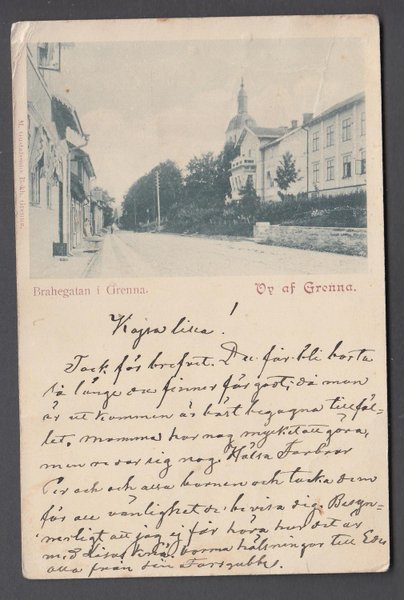 M. Gustafssons Bokh. Grenna.
Brahegatan i Grenna.
Vy af Grenna.
Kajsa lisa!
Tack för brefvet. Du får bli borta
så länge du finner för godt, då man
är ut kommen är bäst begagna tillfäl-
let, mamma har nog mycket att göra,
men re der sig nog. Hälsa Farbror
Per och och alla barnen och tacka dem
för all vänlighet de bevisa dig. Besyn-
nerligt att jag ej får höra hur det är
med Lisas varma hälsningar till Eder
alla från din Farsgubbe.